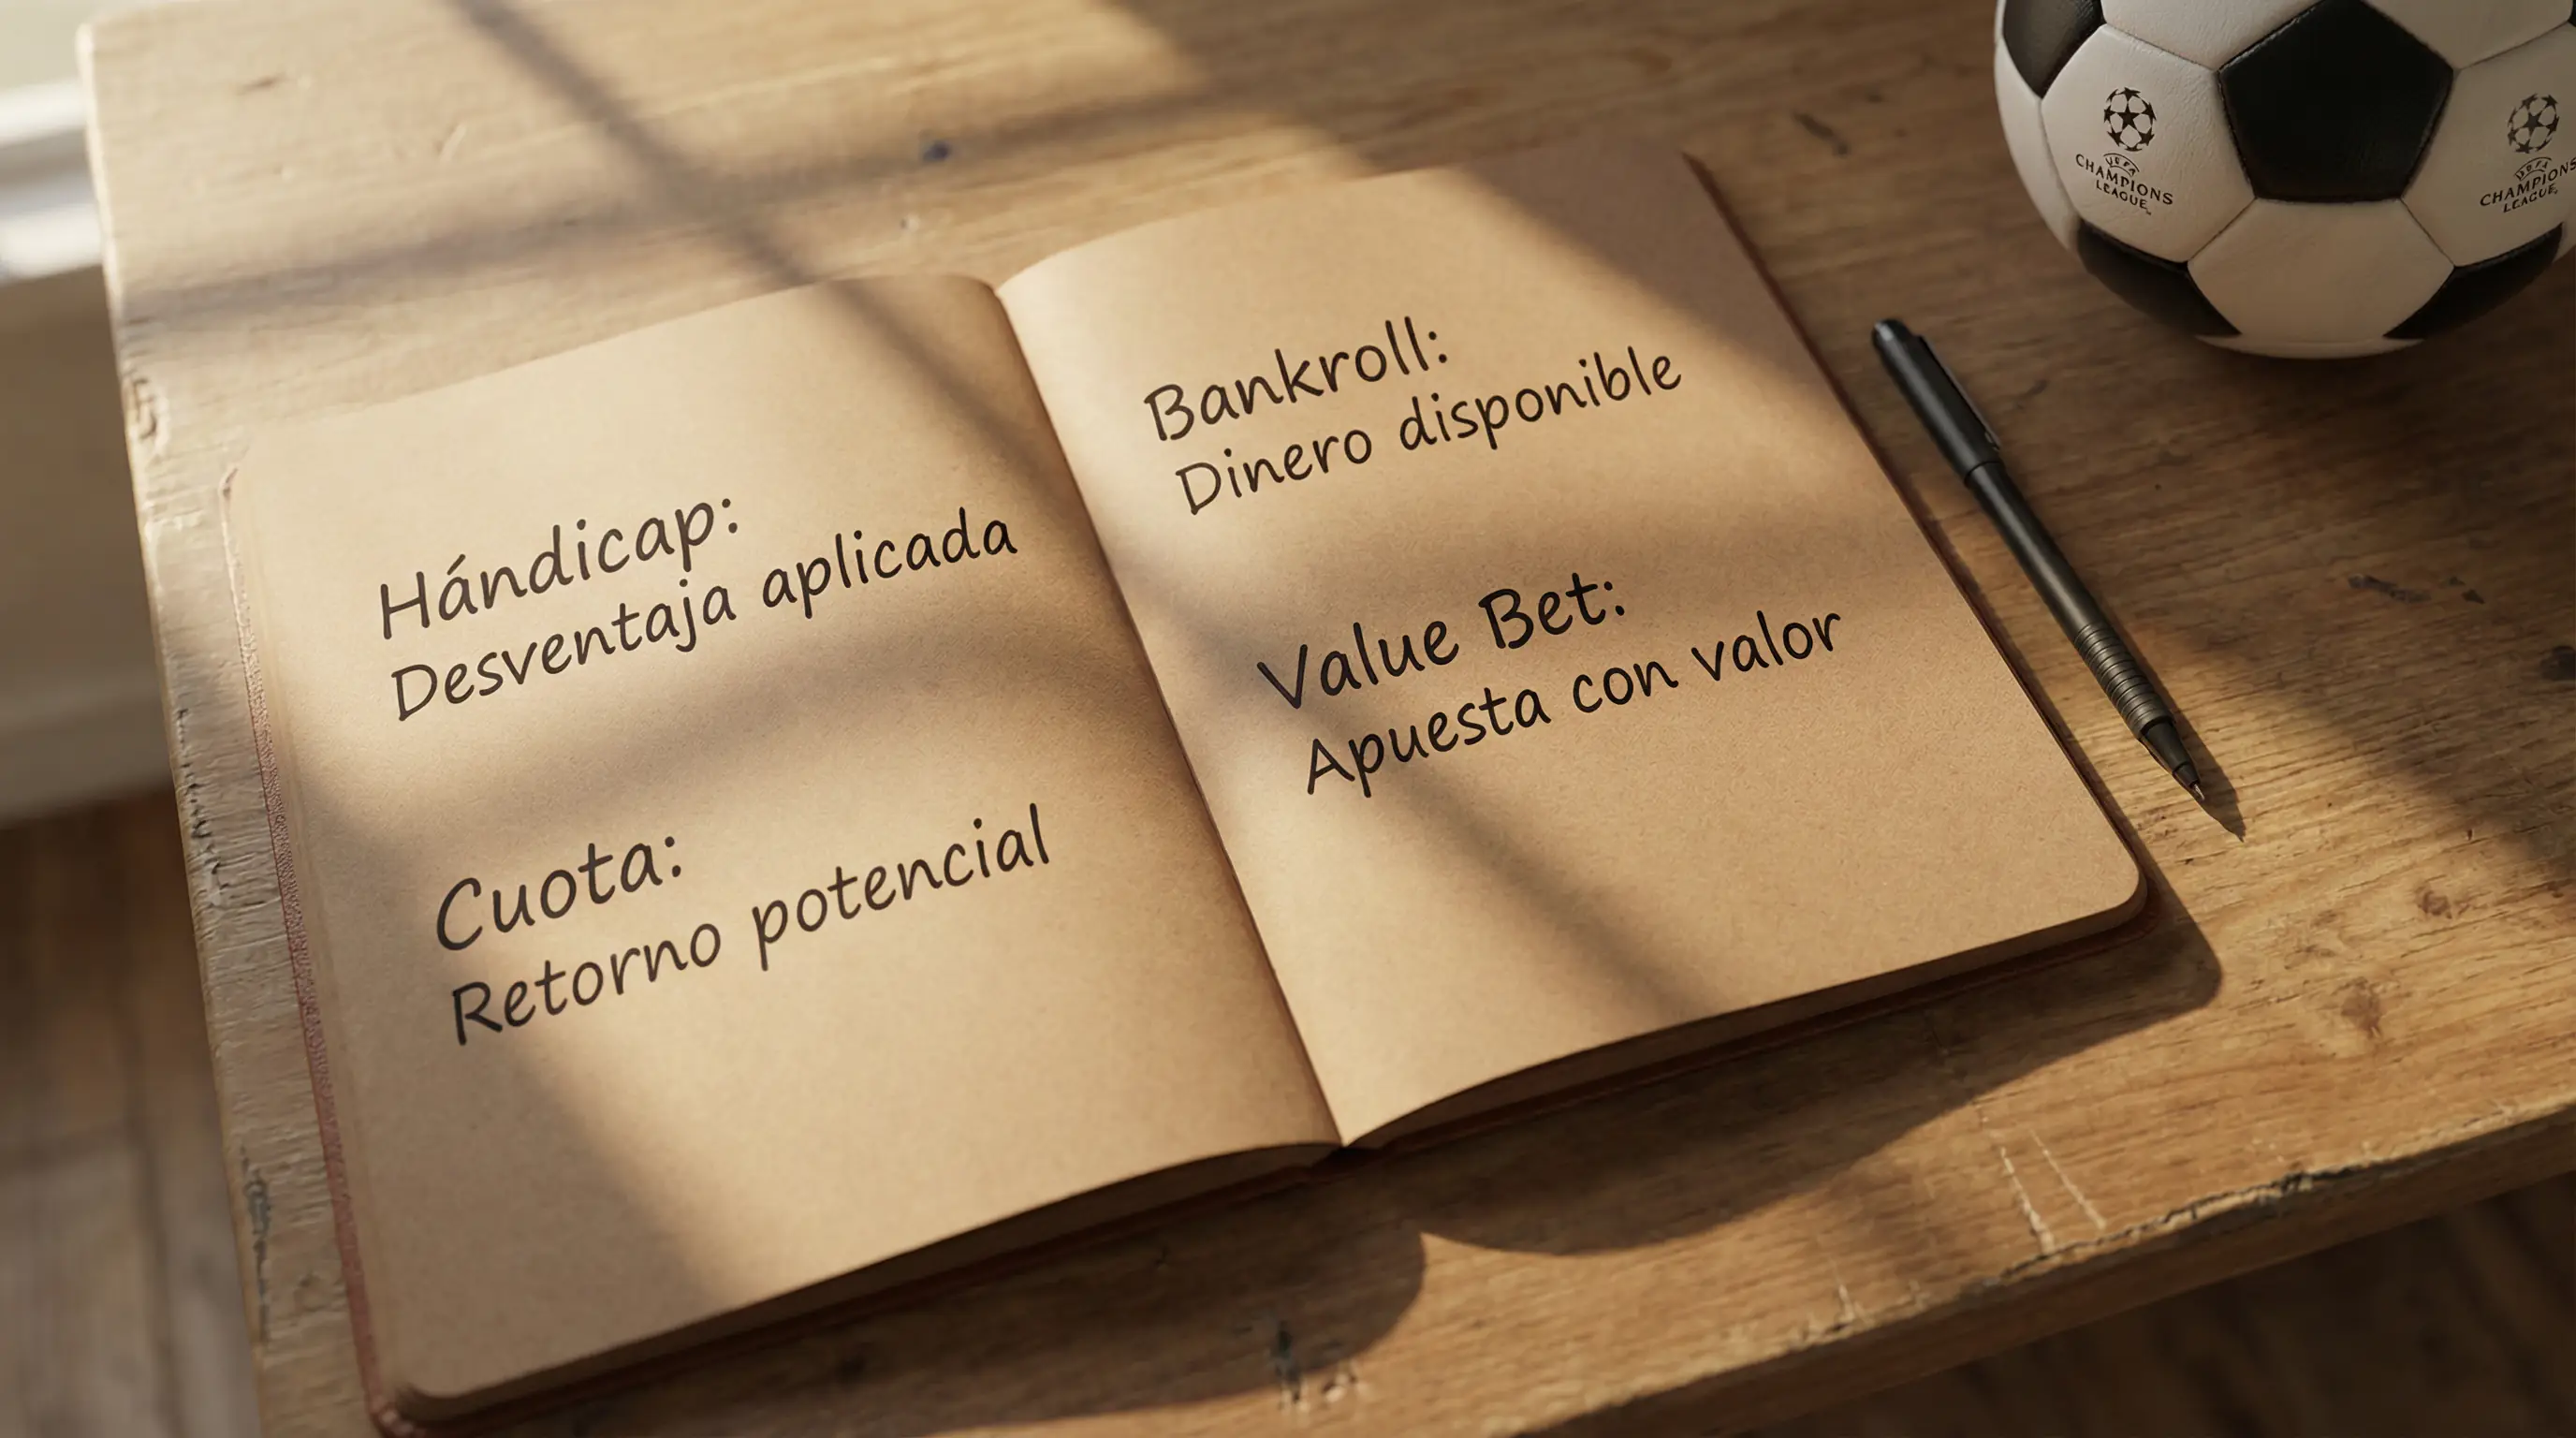 Hándicap:
Desventaja aplicada
Cuota:
Retorno potencial
Bankroll:
Dinero disponible
Value Bet:
Apuesta con valor
UEFA
CHAMPIONS
LEAGUE
UEFA
CHAMPIONS
LEAGUE